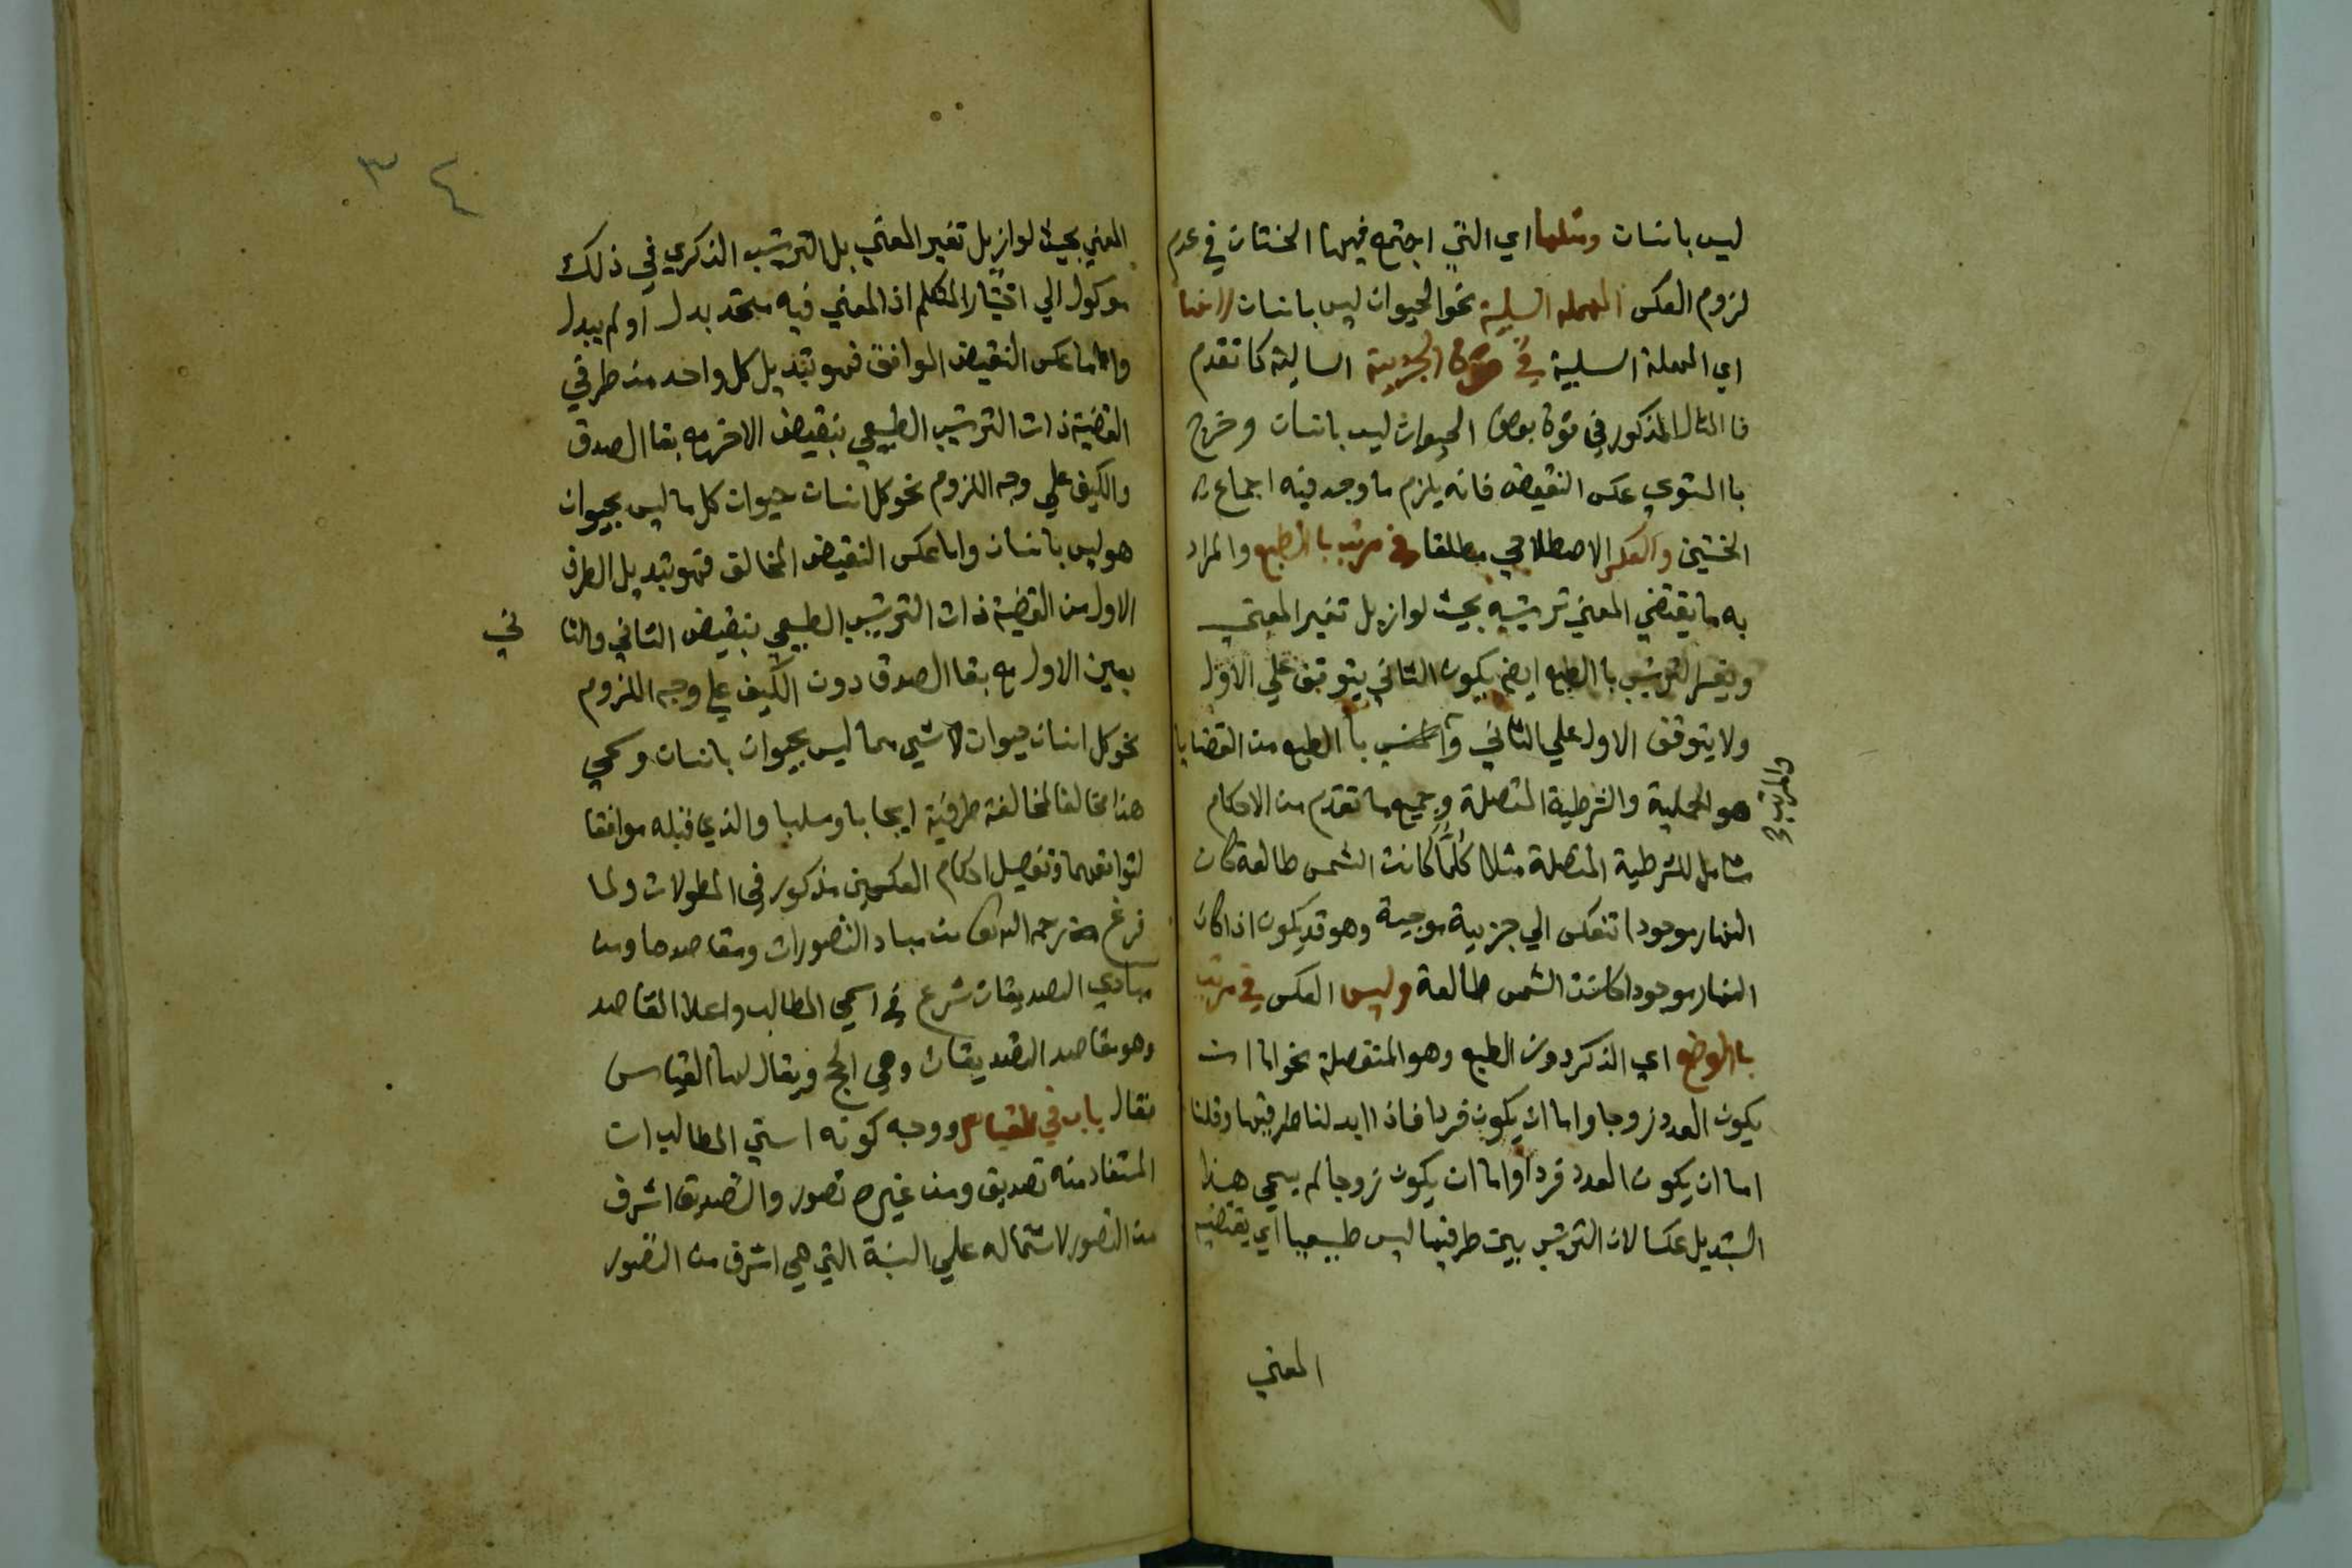 ليس بانسان ومثلها اي التي اجتمع فيها الخستان في عدم
لزوم العكس المهملة السلبية نحو الحيوان ليس بانسان لانها
اي المهملة السلبية في قوة الجزيية السالبة كما تقدم
فاالمثال المذكور في قوة بعض الحيوان ليس بانسان وخرج
باالمستوي عكس النقيض فانه يلزم ما وجد فيه اجتماع
الخستين والعكس الاصطلاحي مطلقا في مرتب باالطبع والمراد
به ما يقتضي المعني ترتيبه بحيث لو ازيل تغير المعني
ويفسر الترتيب باالطبع ايض بكون الثاني يتوقف علي الاول
ولا يتوقف الاول علي الثاني باالطبع من القضايا
والمرتب
هو الحملية والشرطية المتصلة وجميع ما تقدم من الاحكام
شامل للشرطية المتصلة مثلا كلما كانت الشمس طالعة كان
النهار موجودا تنعكس الي جزيية موجبة وهو قد يكون اذا كان
النهار موجودا كانت الشمس طالعة وليس العكس في مرتب
باالوضع اي الذكر دون الطبع وهو المنفصلة نحو اما ان
يكون العدد زوجا واما ان يكون فردا فاذا ابدلنا طرفيها وقلنا
اما ان يكون العدد فردا واما ان يكون زوجا لم يسمي هذا
التبديل عكسا لان الترتيب بين طرفيها ليس طبيعيا اي يقتضيه
المعني
٣٤
المعني بحيث لو ازيل تغير المعني بل الترتيب الذكري في ذلك
موكول الي اختيار المتكلم اذ المعني فيه متحد بدل او لم يبدل
واما عكس النقيض الموافق فهو تبديل كل واحد من طرفي
القضية ذات الترتيب الطبيعي بنقيض الاخر مع بقا الصدق
والكيف علي وجه اللزوم نحو كل انسان حيوان كل ما ليس بحيوان
هو ليس بانسان واما عكس النقيض المخالف فهو تبديل الطرف
الاول من القضية ذات الترتيب الطبيعي بنقيض الثاني والثا
ني
بعين الاول مع بقا الصدق دون الكيف علي وجه اللزوم
نحو كل انسان حيوان لا شي مما ليس بحيوان بانسان وسمي
هذا مخالفا لمخالفة طرفيه ايجابا وسلبا والذي قبله موافقا
لتوافقهما وتفصيل احكام العكسين مذكور في المطولات ولما
فرغ من مباد التصورات ومقاصدها ومن
مبادي التصديقات شرع في اسمي المطالب واعلا المقاصد
وهو مقاصد التصديقات وهي الحجج ويقال لها القياس
فقال باب في القياس ووجه كونه اسني المطالب ان
المستفاد منه تصديق ومن غيره تصور والتصديق اشرف
من التصور لاشتماله علي النسبة التي هي اشرف من التصور